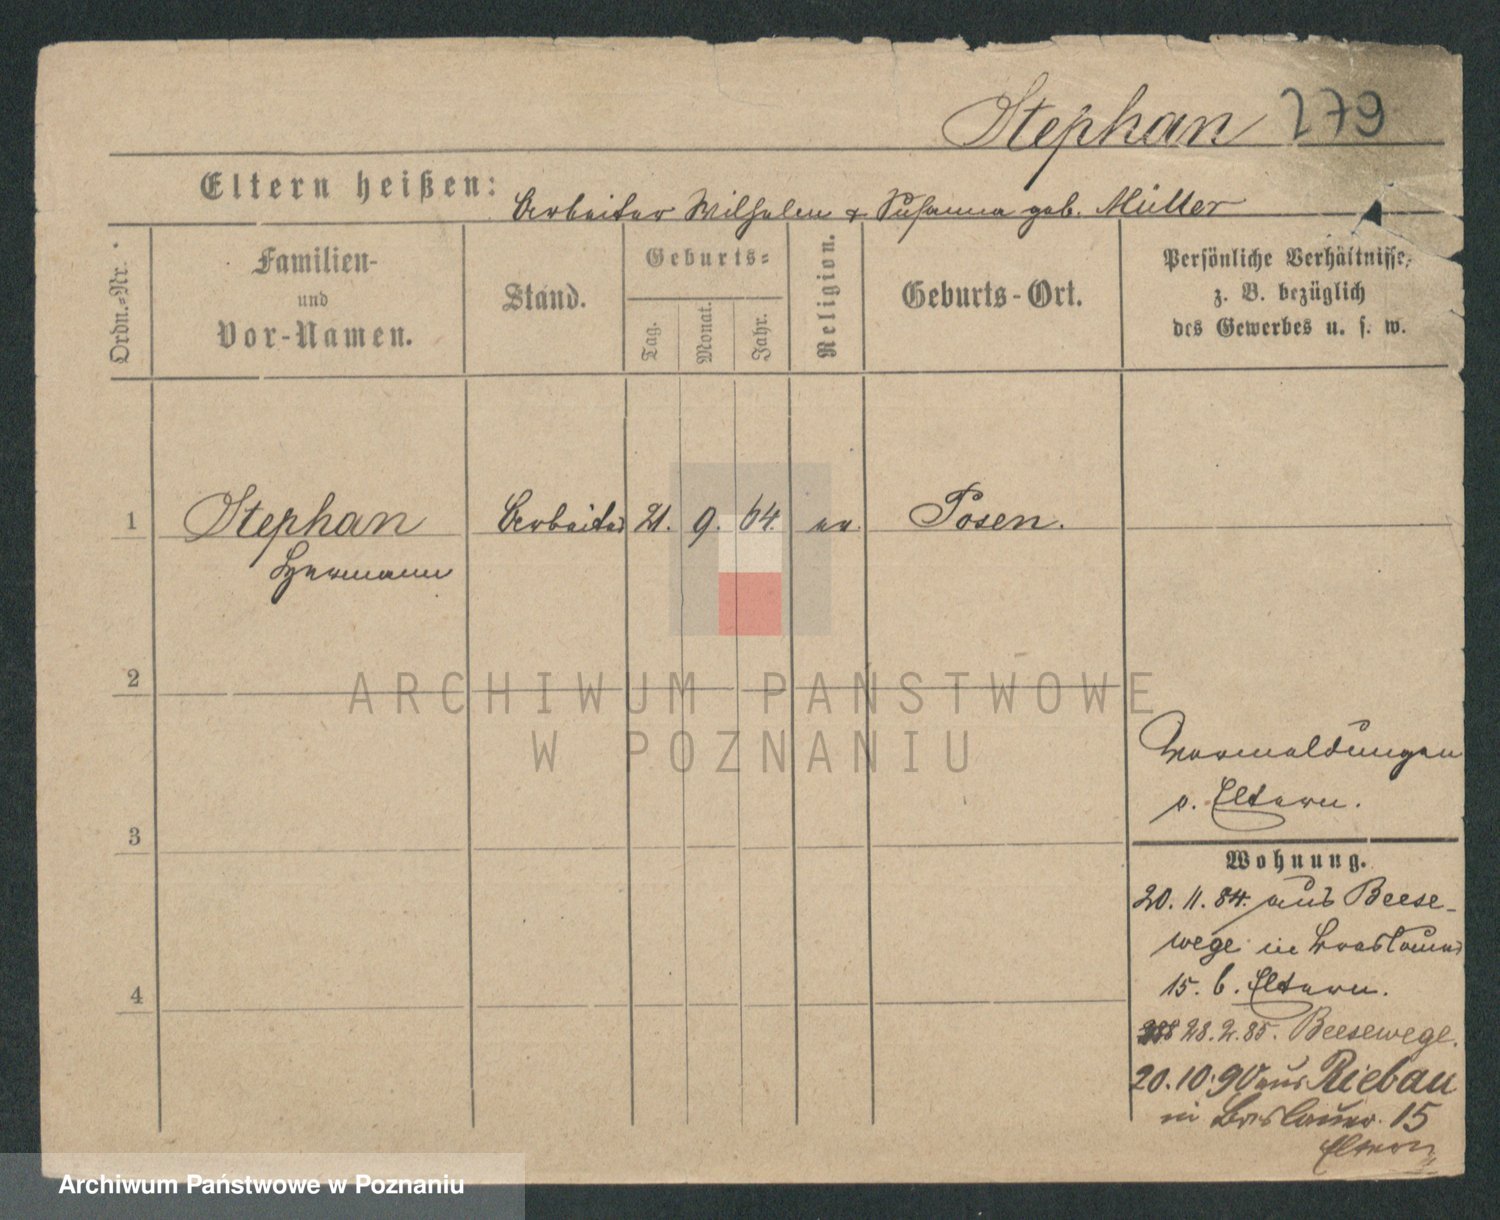 Stephan 279
Eltern heißen: Arbeiter Wilhelm & Susanna geb. Müller
Ordn.-Nr.
Familien-
und
Vor-Namen.
Stand.
Geburts-
Tag.
Monat.
Jahr.
Religion.
Geburts-Ort.
Persönliche Verhältnisse,
z. B. bezüglich
des Gewerbes u. s. w.
1 Stephan Arbeiter 21. 9. 64. ev. Posen.
Hermann
2
ARCHIWUM PAŃSTWOWE
W POZNANIU
Vermeldungen
s. Eltern.
3
Wohnung.
20. 11. 84. aus Beese-
wege in Breslauer
15. b. Eltern.
4
28. 2. 85. Beesewege.
20. 10. 90 aus Riebau
in Breslauer. 15
Eltern
Archiwum Państwowe w Poznaniu